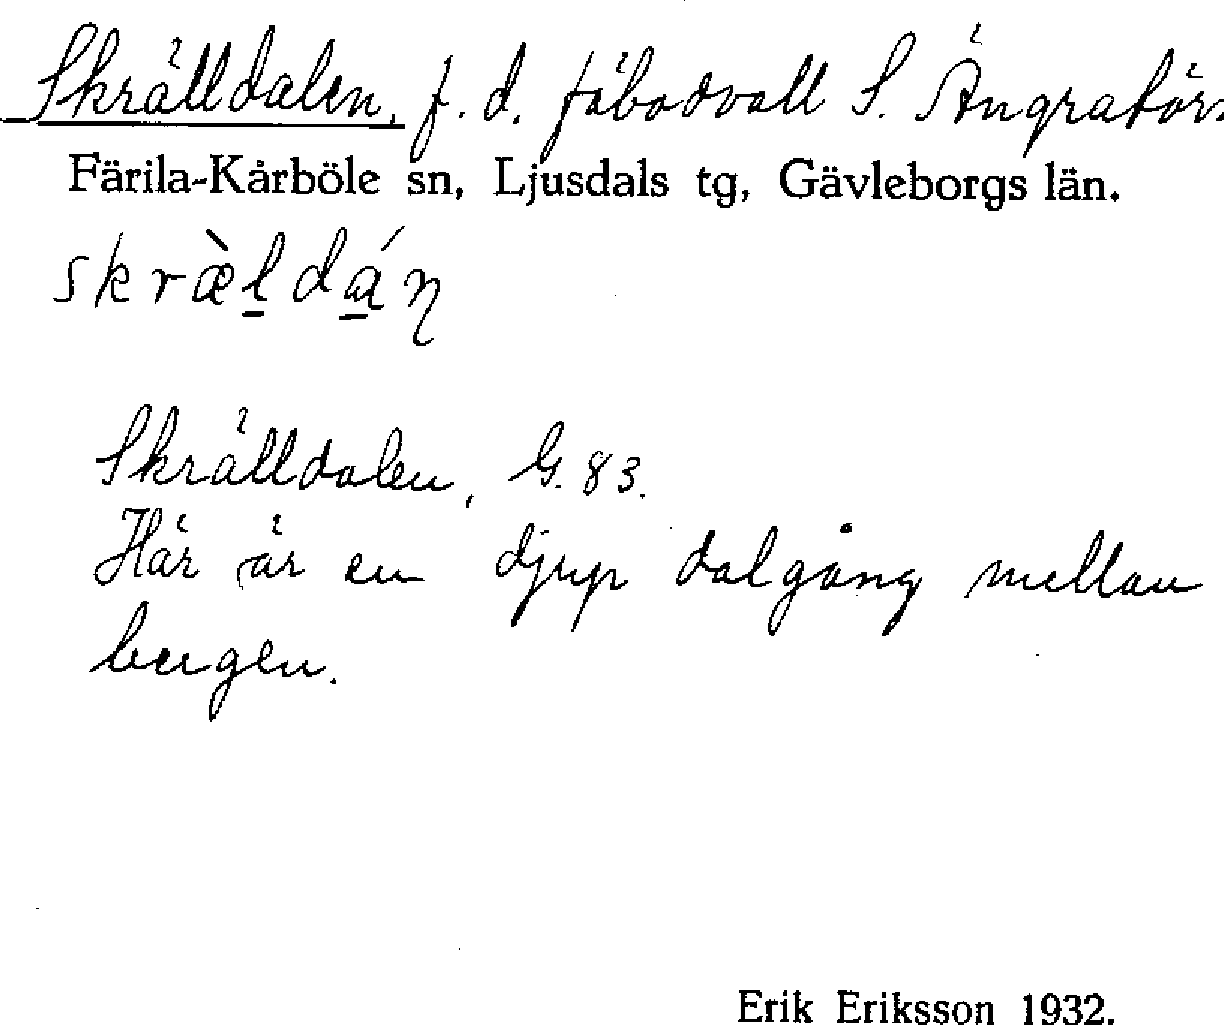 Skrälldalen, f. d. fäbodvall S. Ängratörn
Färila-Kårböle sn, Ljusdals tg, Gävleborgs län.
skræ̀ldán
Skrälldalen, G. 83.
Här är en djup dalgång mellan
bergen.
Erik Eriksson 1932.